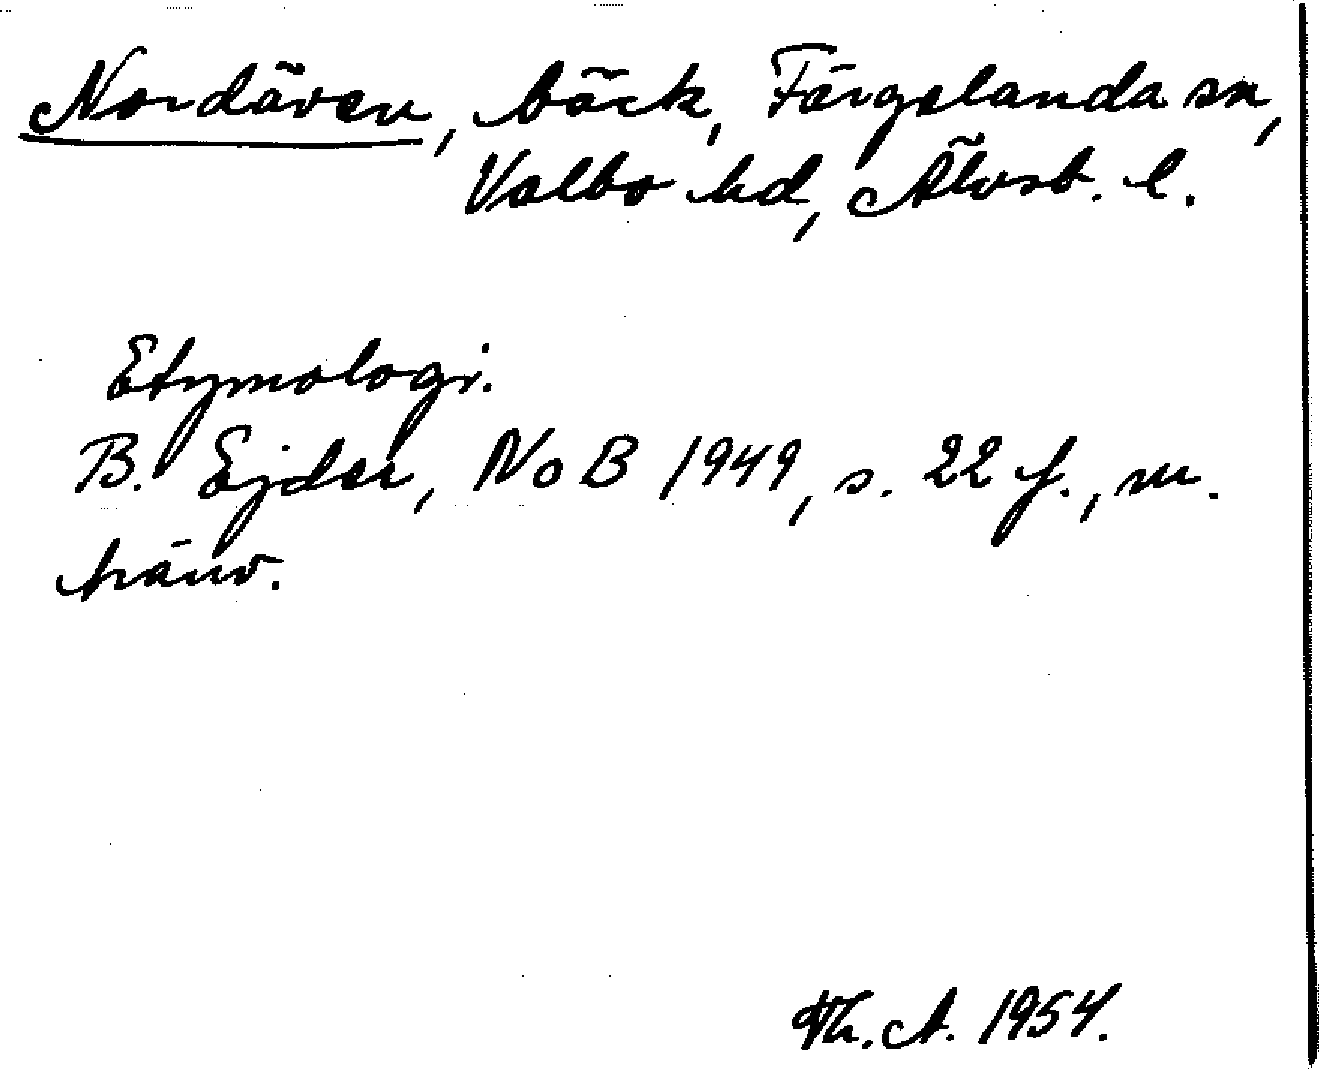 Nordäven, bäck, Färgelanda sn,
Valbo hd, Älvsb. l.
Etymologi.
B. Ejder, NoB 1949, s. 22 f., m.
hänv.
Th. A. 1954.